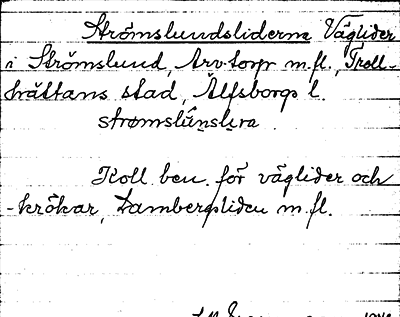 Strömslundsliderna Väglider
i Strömslund, Arvtorp m.fl., Troll-
hättans stad, Älfsborgs l.
strømslúnslıra
Koll. ben. för väglider och
-krökar, Dambergsliden m.fl.